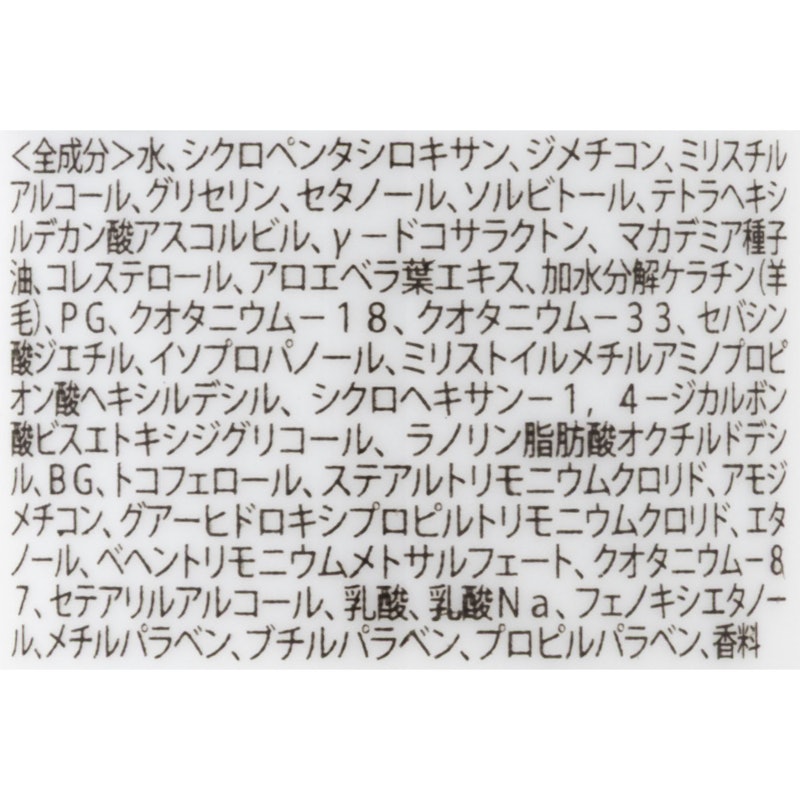 <全成分>水、シクロペンタシロキサン、ジメチコン、ミリスチル
アルコール、グリセリン、セタノール、ソルビトール、テトラヘキシ
ルデカン酸アスコルビル、γ－ドコサラクトン、マカデミア種子
油、コレステロール、アロエベラ葉エキス、加水分解ケラチン(羊
毛)、PG、クオタニウム－18、クオタニウム－33、セバシン
酸ジエチル、イソプロパノール、ミリストイルメチルアミノプロピ
オン酸ヘキシルデシル、シクロヘキサン－1，4－ジカルボン
酸ビスエトキシジグリコール、ラノリン脂肪酸オクチルドデシ
ル、BG、トコフェロール、ステアルトリモニウムクロリド、アモジ
メチコン、グアーヒドロキシプロピルトリモニウムクロリド、エタ
ノール、ベヘントリモニウムメトサルフェート、クオタニウム－8
7、セテアリルアルコール、乳酸、乳酸Na、フェノキシエタノー
ル、メチルパラベン、ブチルパラベン、プロピルパラベン、香料